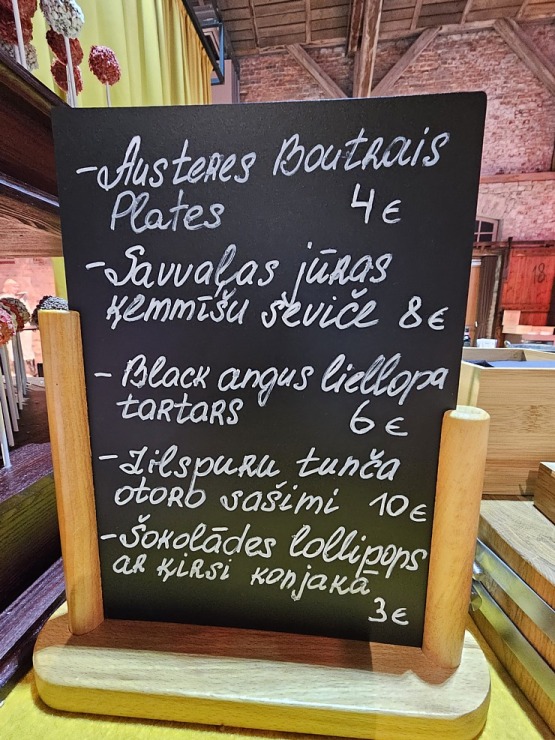 - Austeres Boutrais
Plates 4€
- Savvaļas jūras
ķemmīšu seviče 8€
- Black angus liellopa
tartars 6€
- Zilspuru tunča
otoro sašimi 10€
- Šokolādes lollipops
ar ķirsi konjakā
3€